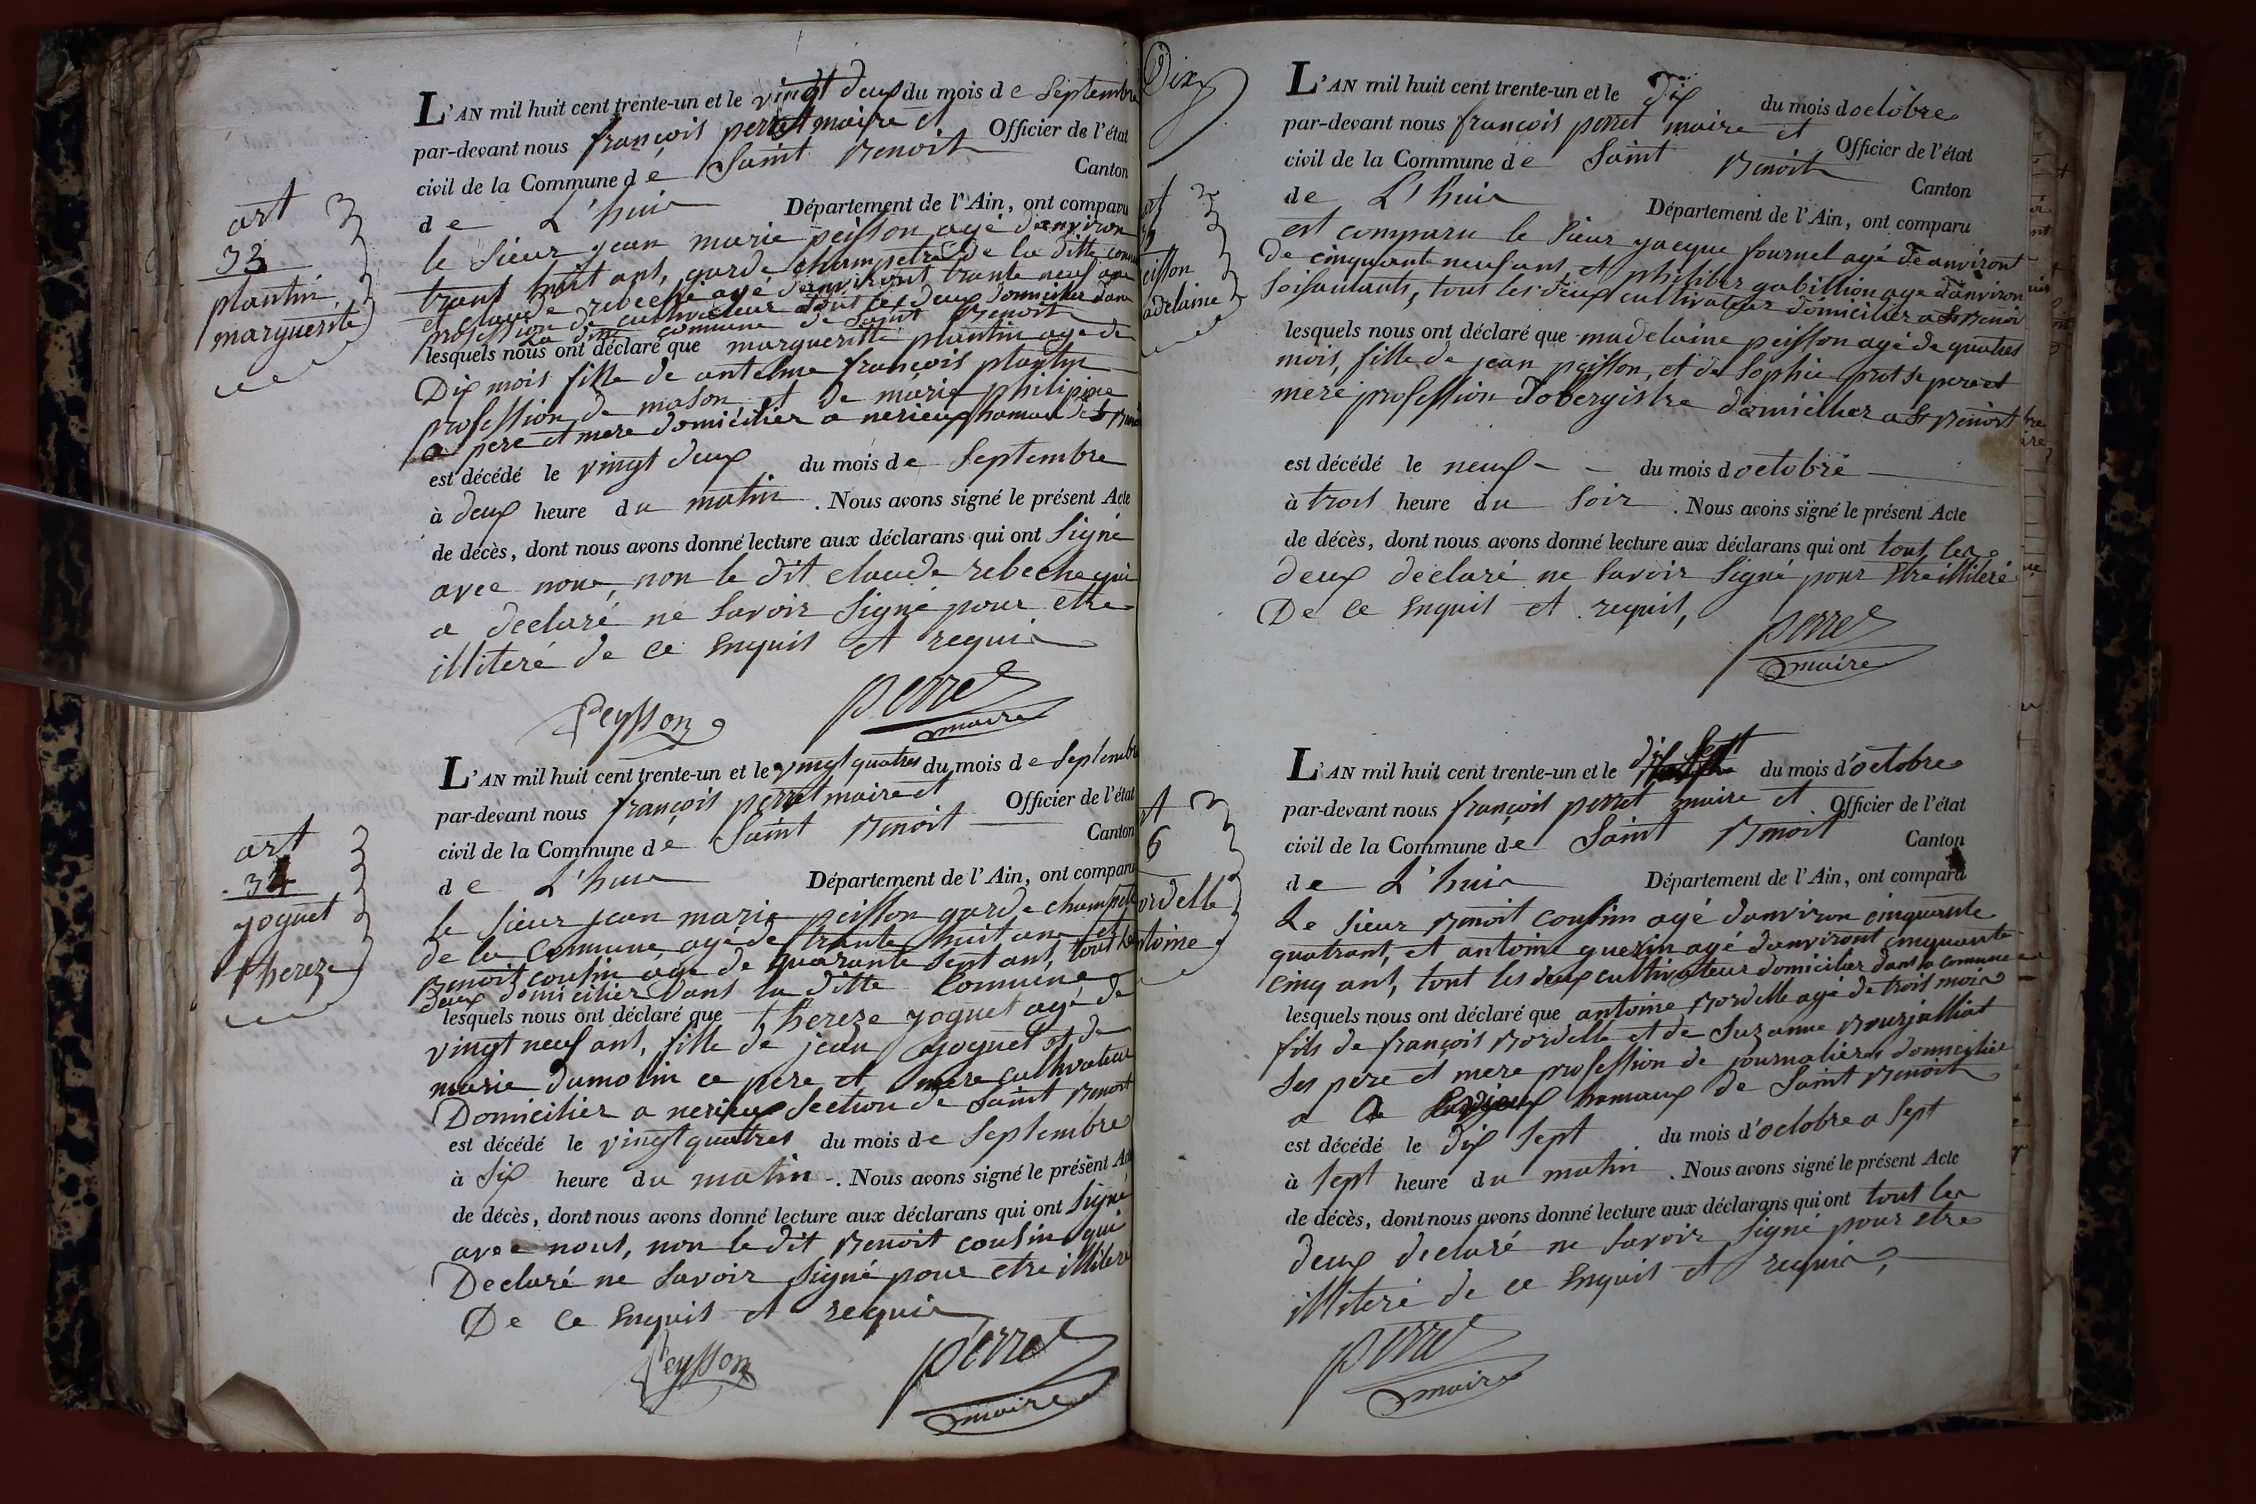 L'AN mil huit cent trente-un et le vingt deux du mois de Septembre
par-devant nous françois perret maire et Officier de l'état
civil de la Commune de Saint Benoit Canton
de L'huis Département de l'Ain, ont comparu
art
33
plantin
marguerite
le Sieur jean marie peisson agé d'anviron
trant huit ant, garde champetre de la ditte comu
et claude rebeche agé d'anviront trante neuf ans
profession de cultivateur tout les deux domicilier dans
La ditte commune de Saint Benoit
lesquels nous ont déclaré que margueritte plantin agé de
Dix mois fille de antelme françois plantin
profession de mason et de marie philipine
pere et mere domicilier a nerieux hamaux de St Benoit
est décédé le vingt deux du mois de Septembre
à deux heure du matin. Nous avons signé le présent Acte
de décès, dont nous avons donné lecture aux déclarans qui ont Signé
avec nous, non le dit claude rebeche qui
a declaré ne Savoir Signé pour etre
illiteré de ce Enquis et requis
Peysson perret
maire
L'AN mil huit cent trente-un et le vingt quatres du mois de Septembre
par-devant nous françois perret maire et Officier de l'état
civil de la Commune de Saint Benoit Canton
de L'huis Département de l'Ain, ont comparu
art
34
joguet
thereze
le Sieur jean marie peisson garde champetre
de la Commune, agé de trante huit ans et
Benoit cousin agé de quarante Sept ant, tout les
Deux domicilier Dans la ditte Commune
lesquels nous ont déclaré que thereze joguet agé de
vingt neuf ant, fille de jean joguet et de
marie dumolin ce pere et mere cultivateur
Domicilier a nerieux Section de Saint Benoit
est décédé le vingt quatres du mois de Septembre
à Six heure du matin. Nous avons signé le présent Acte
de décès, dont nous avons donné lecture aux déclarans qui ont Signé
avec nous, non le dit Benoit cousin qui
Declaré ne Savoir Signé pour etre illiteré
De Ce Enquis et requis
Peysson perret
maire
Dix
L'AN mil huit cent trente-un et le Dix du mois d'octobre
par-devant nous françois perret maire et Officier de l'état
civil de la Commune de Saint Benoit Canton
de L'huis Département de l'Ain, ont comparu
eisson
adelaine
est comparu le Sieur jacque fournel agé de anviront
de cinquante neuf ant, et philiber gabillion agé d'anviron
Soisantants, tout les deux cultivateur domicilier a St Benoi
lesquels nous ont déclaré que madelaine peisson agé de quatres
mois, fille de jean peisson, et de Sophie prot se pere et
mere profession dobergistre domicilier a St Benoit
est décédé le neuf du mois d octobre
à trois heure du Soir. Nous avons signé le présent Acte
de décès, dont nous avons donné lecture aux déclarans qui ont tout les
deux declaré ne Savoir Signé pour Etre illiteré
De Ce Enquis et requis,
perret
maire
L'AN mil huit cent trente-un et le dix Sept du mois d'octobre
par-devant nous françois perret maire et Officier de l'état
civil de la Commune de Saint Benoit Canton
de L'huis Département de l'Ain, ont comparu
6
ordelle
ntoine
Le Sieur Benoit cousin agé danviron cinquante
quatrant, et antoine guerin agé danviront cinquante
cinq ant, tout les deux cultivateur domicilier dans la commune
lesquels nous ont déclaré que antoine Bordelle agé de trois mois
fils de françois Bordelle et de Suzanne Bourjalliat
Ses pere et mere profession de journalier domicilier
a hamaux de Saint Benoit
est décédé le dix Sept du mois d'octobre a Sept
à Sept heure du matin. Nous avons signé le présent Acte
de décès, dont nous avons donné lecture aux déclarans qui ont tout les
deux declaré ne Savoir Signé pour etre
illiteré de ce Enquis et requis,
perret
maire